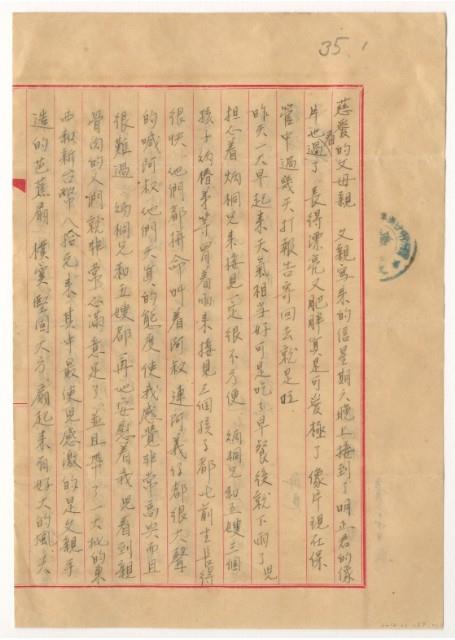 35.1
慈愛的父母親 父親寄來的信星期六晚上接到了明正君的像
片也看過了長得漂亮又肥胖真是可愛極了像片現在保
管中過幾天打報告寄回去就是吃
昨天一大早起來天氣相當好可是吃了早餐後就下雨了兒
担心着炳桐兄來接見一定很不方便 炳桐兄和五嫂三個
孩子炳 等冒着雨來接見三個孩子都比前生長得
很快 他們都拼命叫着阿叔連阿義仔都很大聲
的喊阿叔他們天真的態度使我感覺非常高興而且
很難過 炳桐兄和五嫂都再也安慰着我兒看到親
骨肉的人們就非常心滿意足了並且帶了一大批的東
西和新台幣八拾元來其中最使兒感激的是父親手
造的芭蕉扇 樸實堅固大方扇起來有好大的風